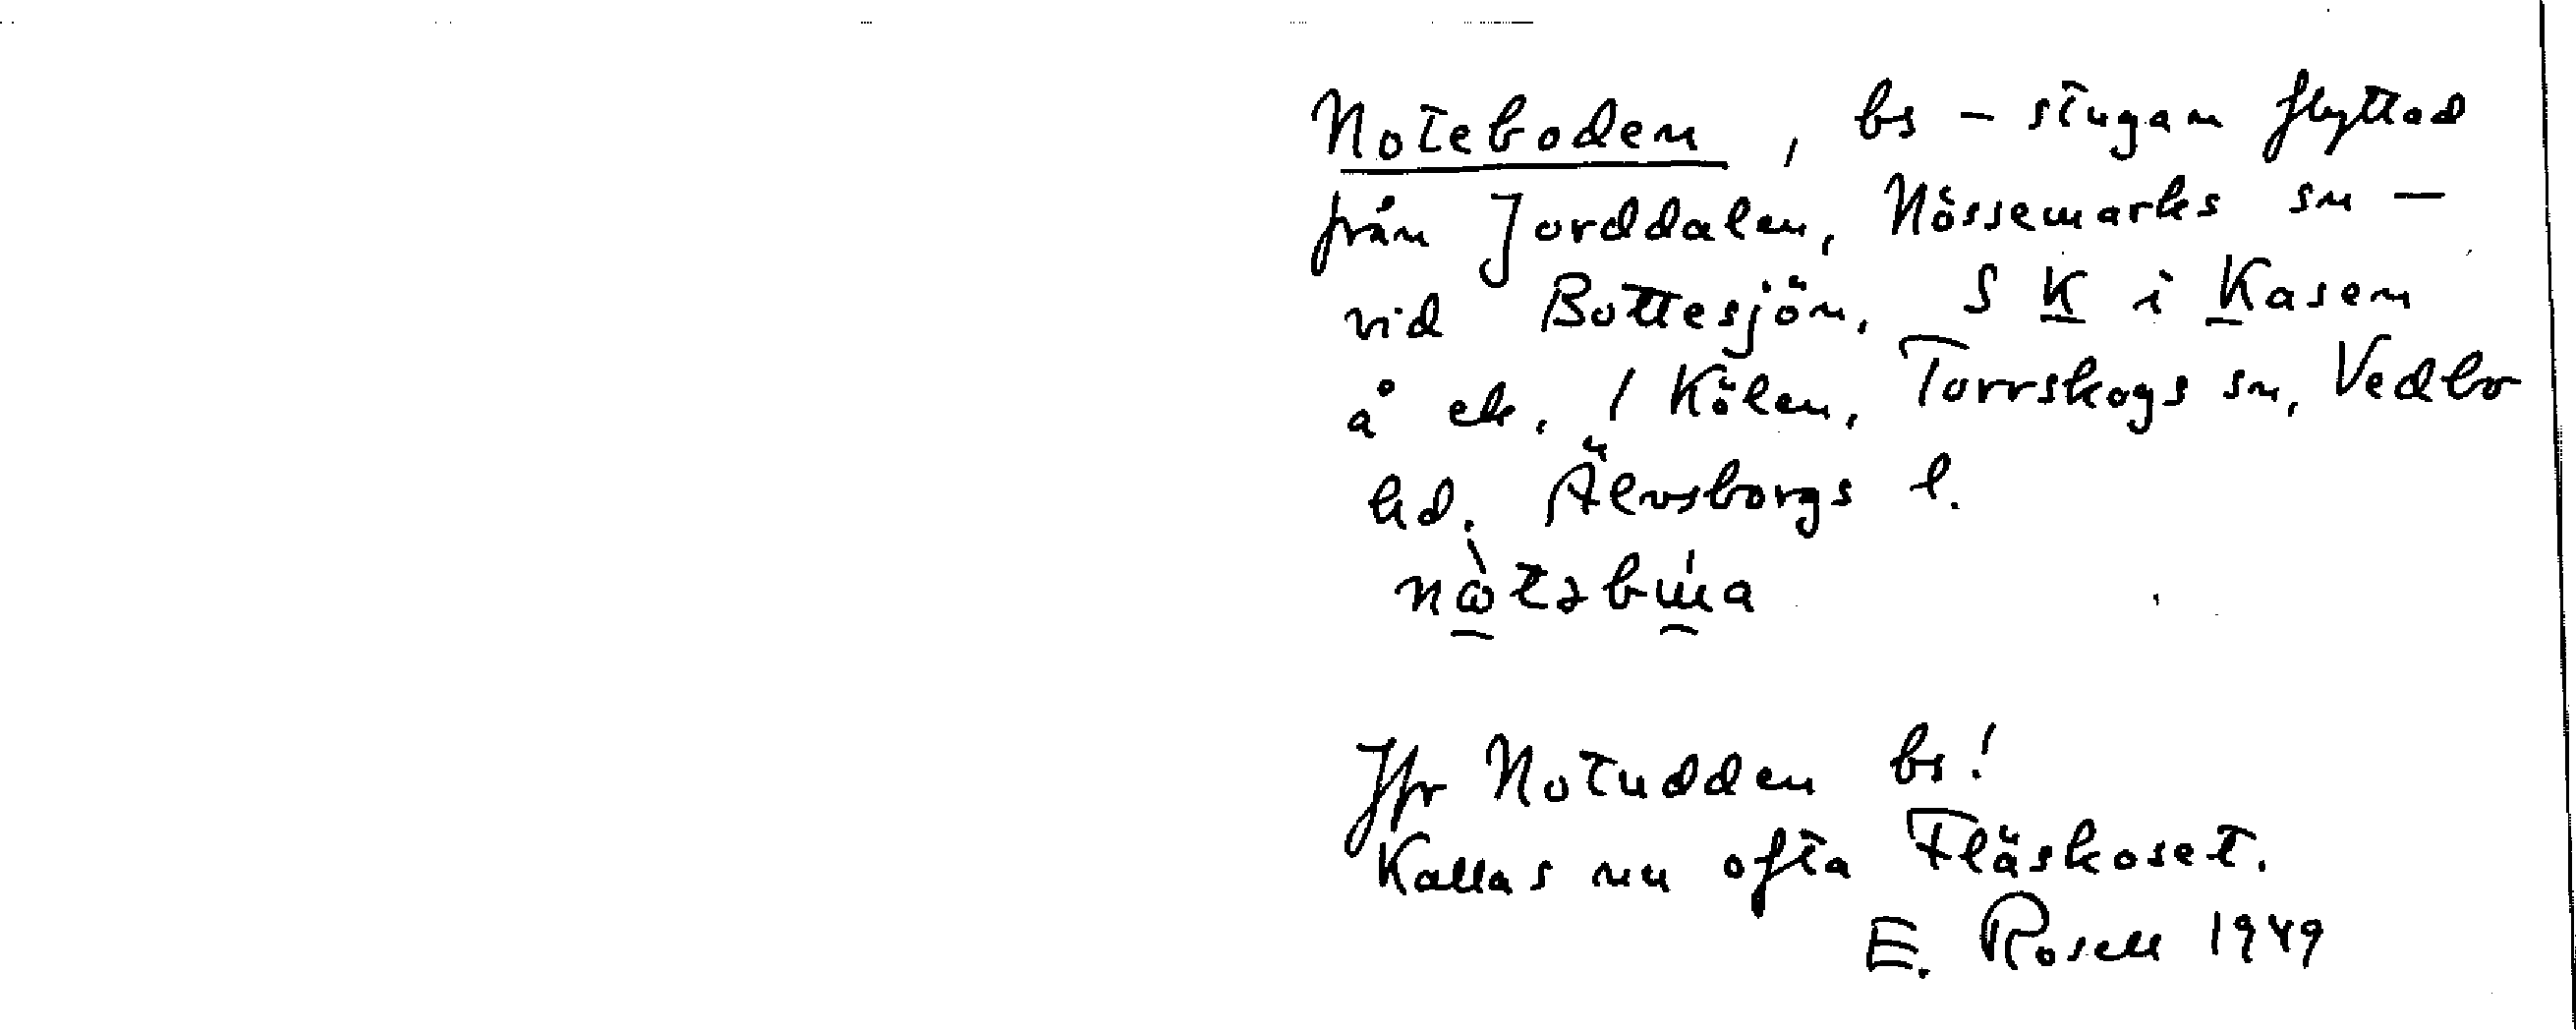 Noteboden, bs – stugan flyttad
från Jorddalen, Nössemarks sn –
vid Bottesjön, S K i Kasen
å ek. 1 Kölen, Torrskogs sn, Vedbo
hd. Älvsborgs l.
Jfr Notudden bs!
Kallas nu ofta Fläskoset.
E. Rosell 1949